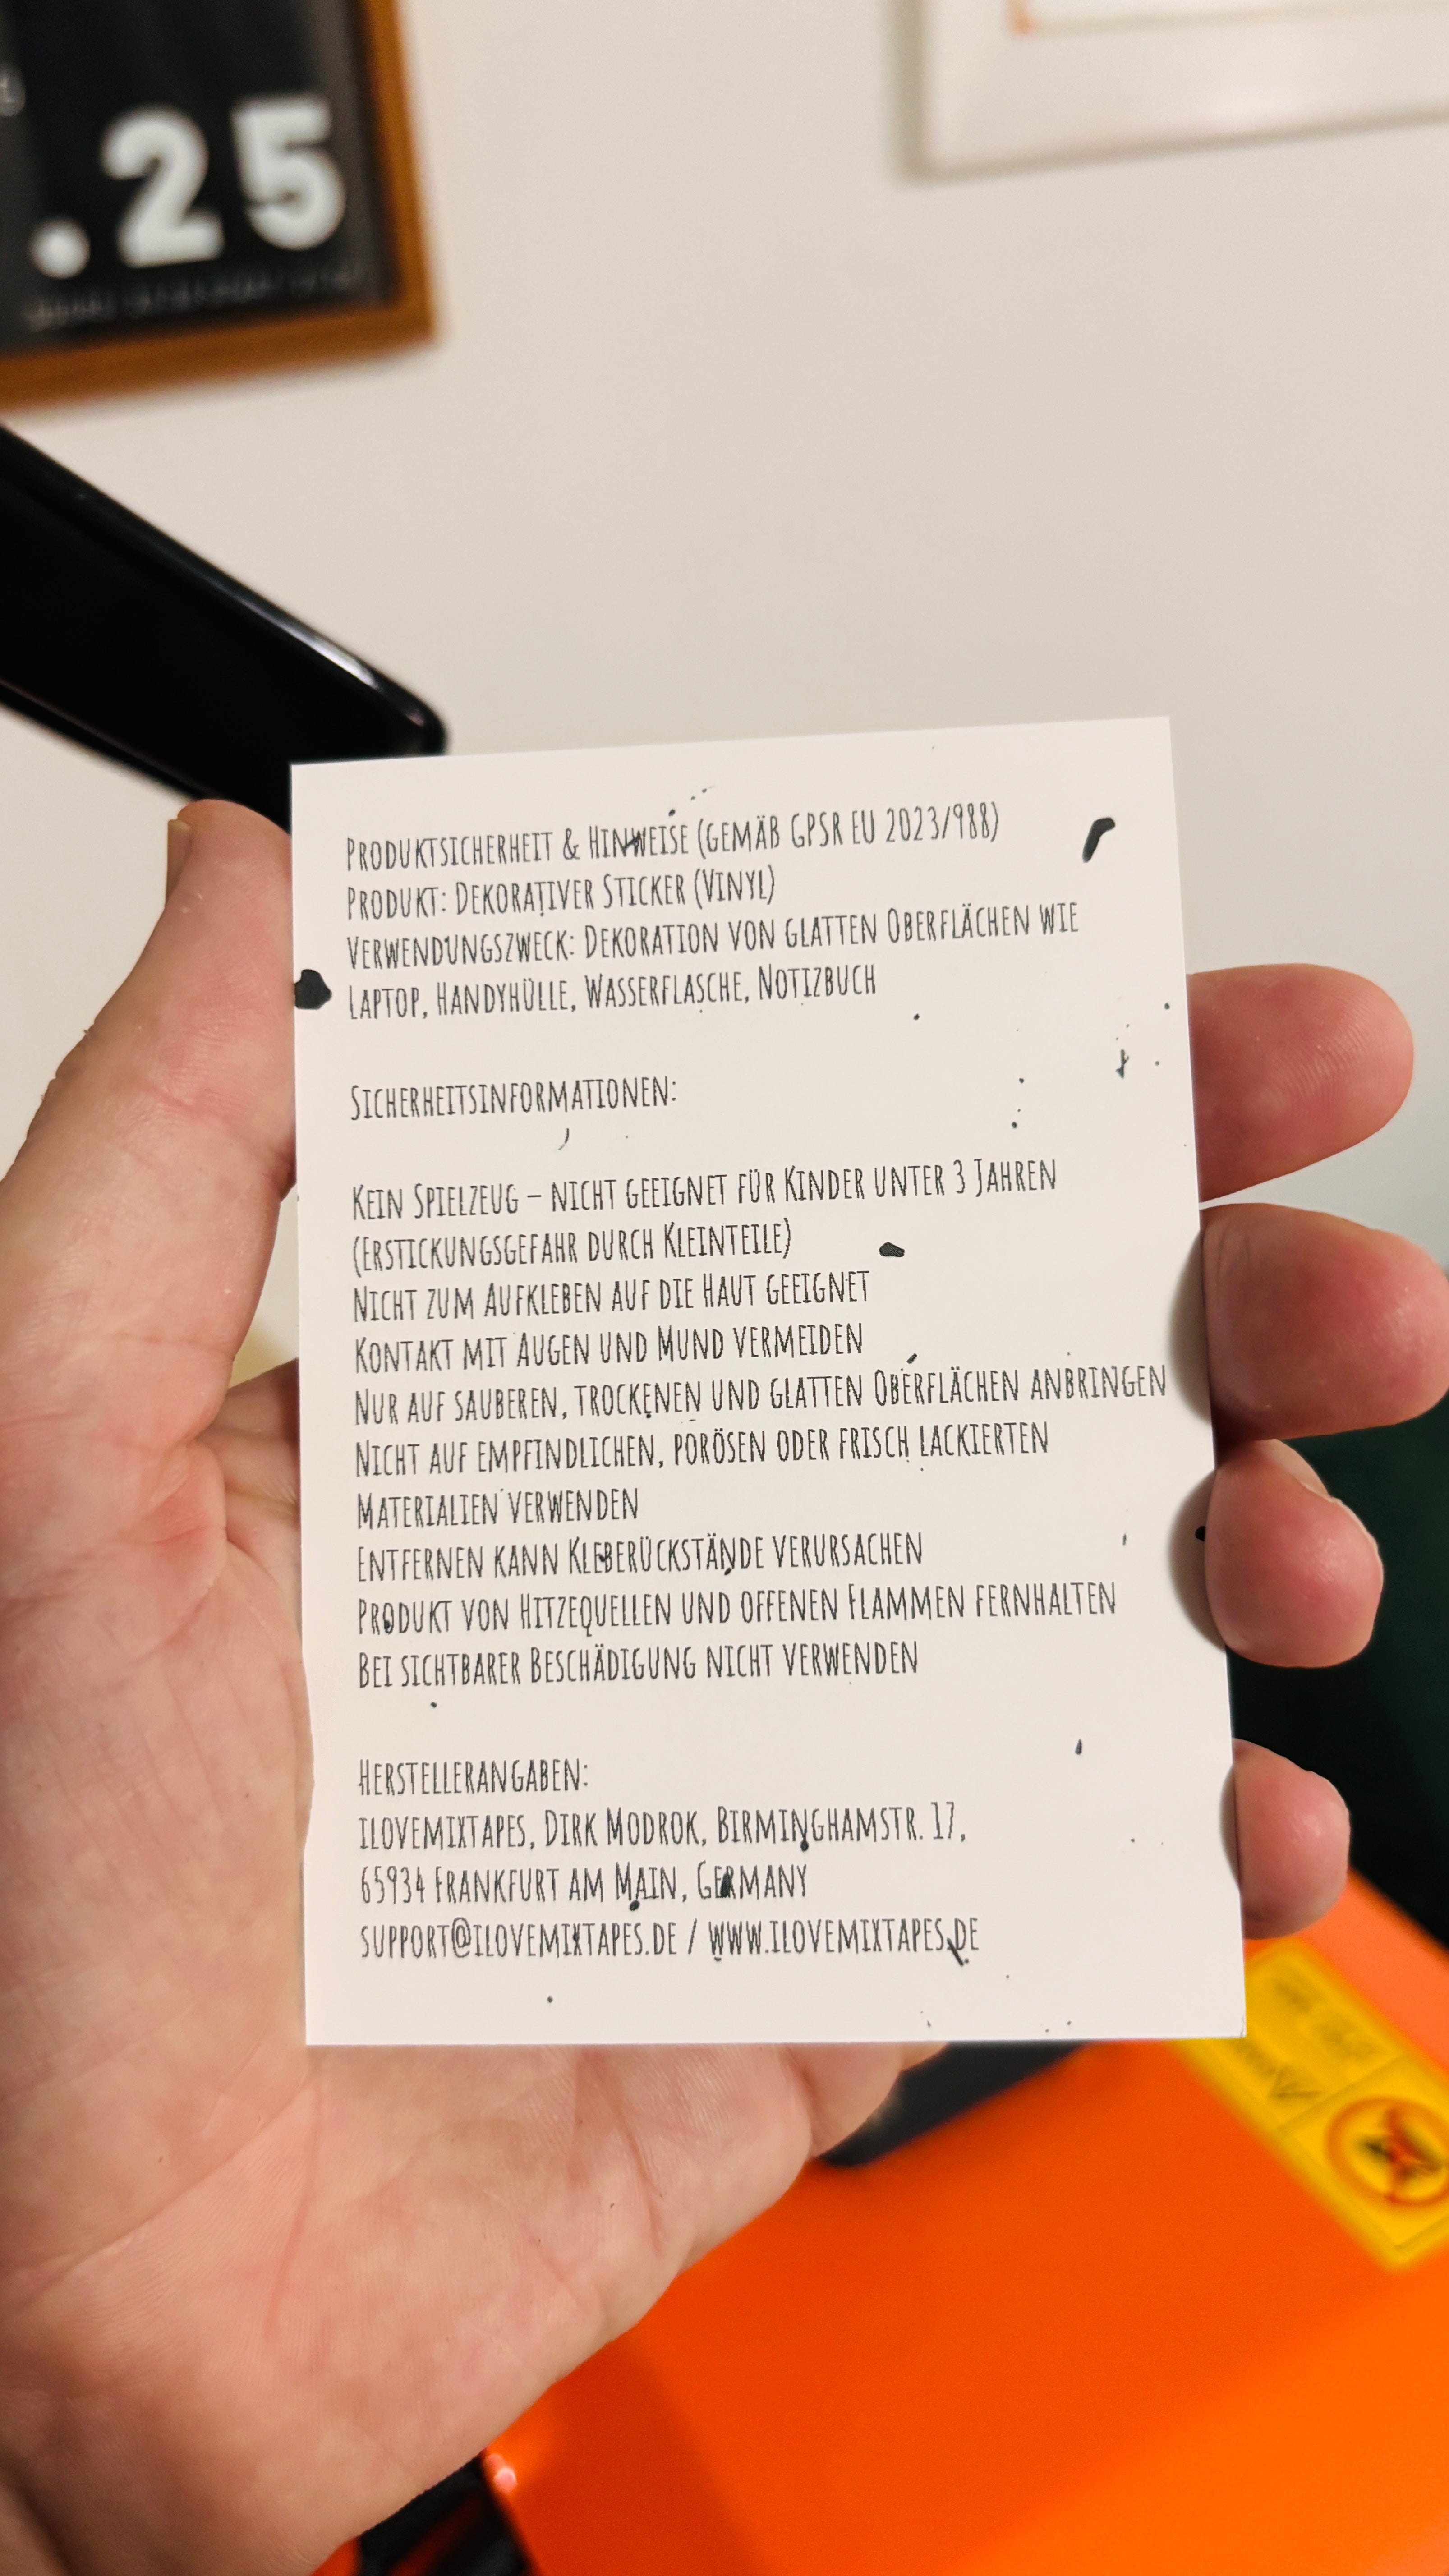 .25
Produktsicherheit & Hinweise (gemäß GPSR EU 2023/988)
Produkt: Dekorativer Sticker (Vinyl)
Verwendungszweck: Dekoration von glatten Oberflächen wie
Laptop, Handyhülle, Wasserflasche, Notizbuch
Sicherheitsinformationen:
Kein Spielzeug – nicht geeignet für Kinder unter 3 Jahren
(Erstickungsgefahr durch Kleinteile)
Nicht zum Aufkleben auf die Haut geeignet
Kontakt mit Augen und Mund vermeiden
Nur auf sauberen, trockenen und glatten Oberflächen anbringen
Nicht auf empfindlichen, porösen oder frisch lackierten
Materialien verwenden
Entfernen kann Kleberückstände verursachen
Produkt von Hitzequellen und offenen Flammen fernhalten
Bei sichtbarer Beschädigung nicht verwenden
Herstellerangaben:
ilovemixtapes, Dirk Modrok, Birminghamstr. 17,
65934 Frankfurt am Main, Germany
support@ilovemixtapes.de / www.ilovemixtapes.de